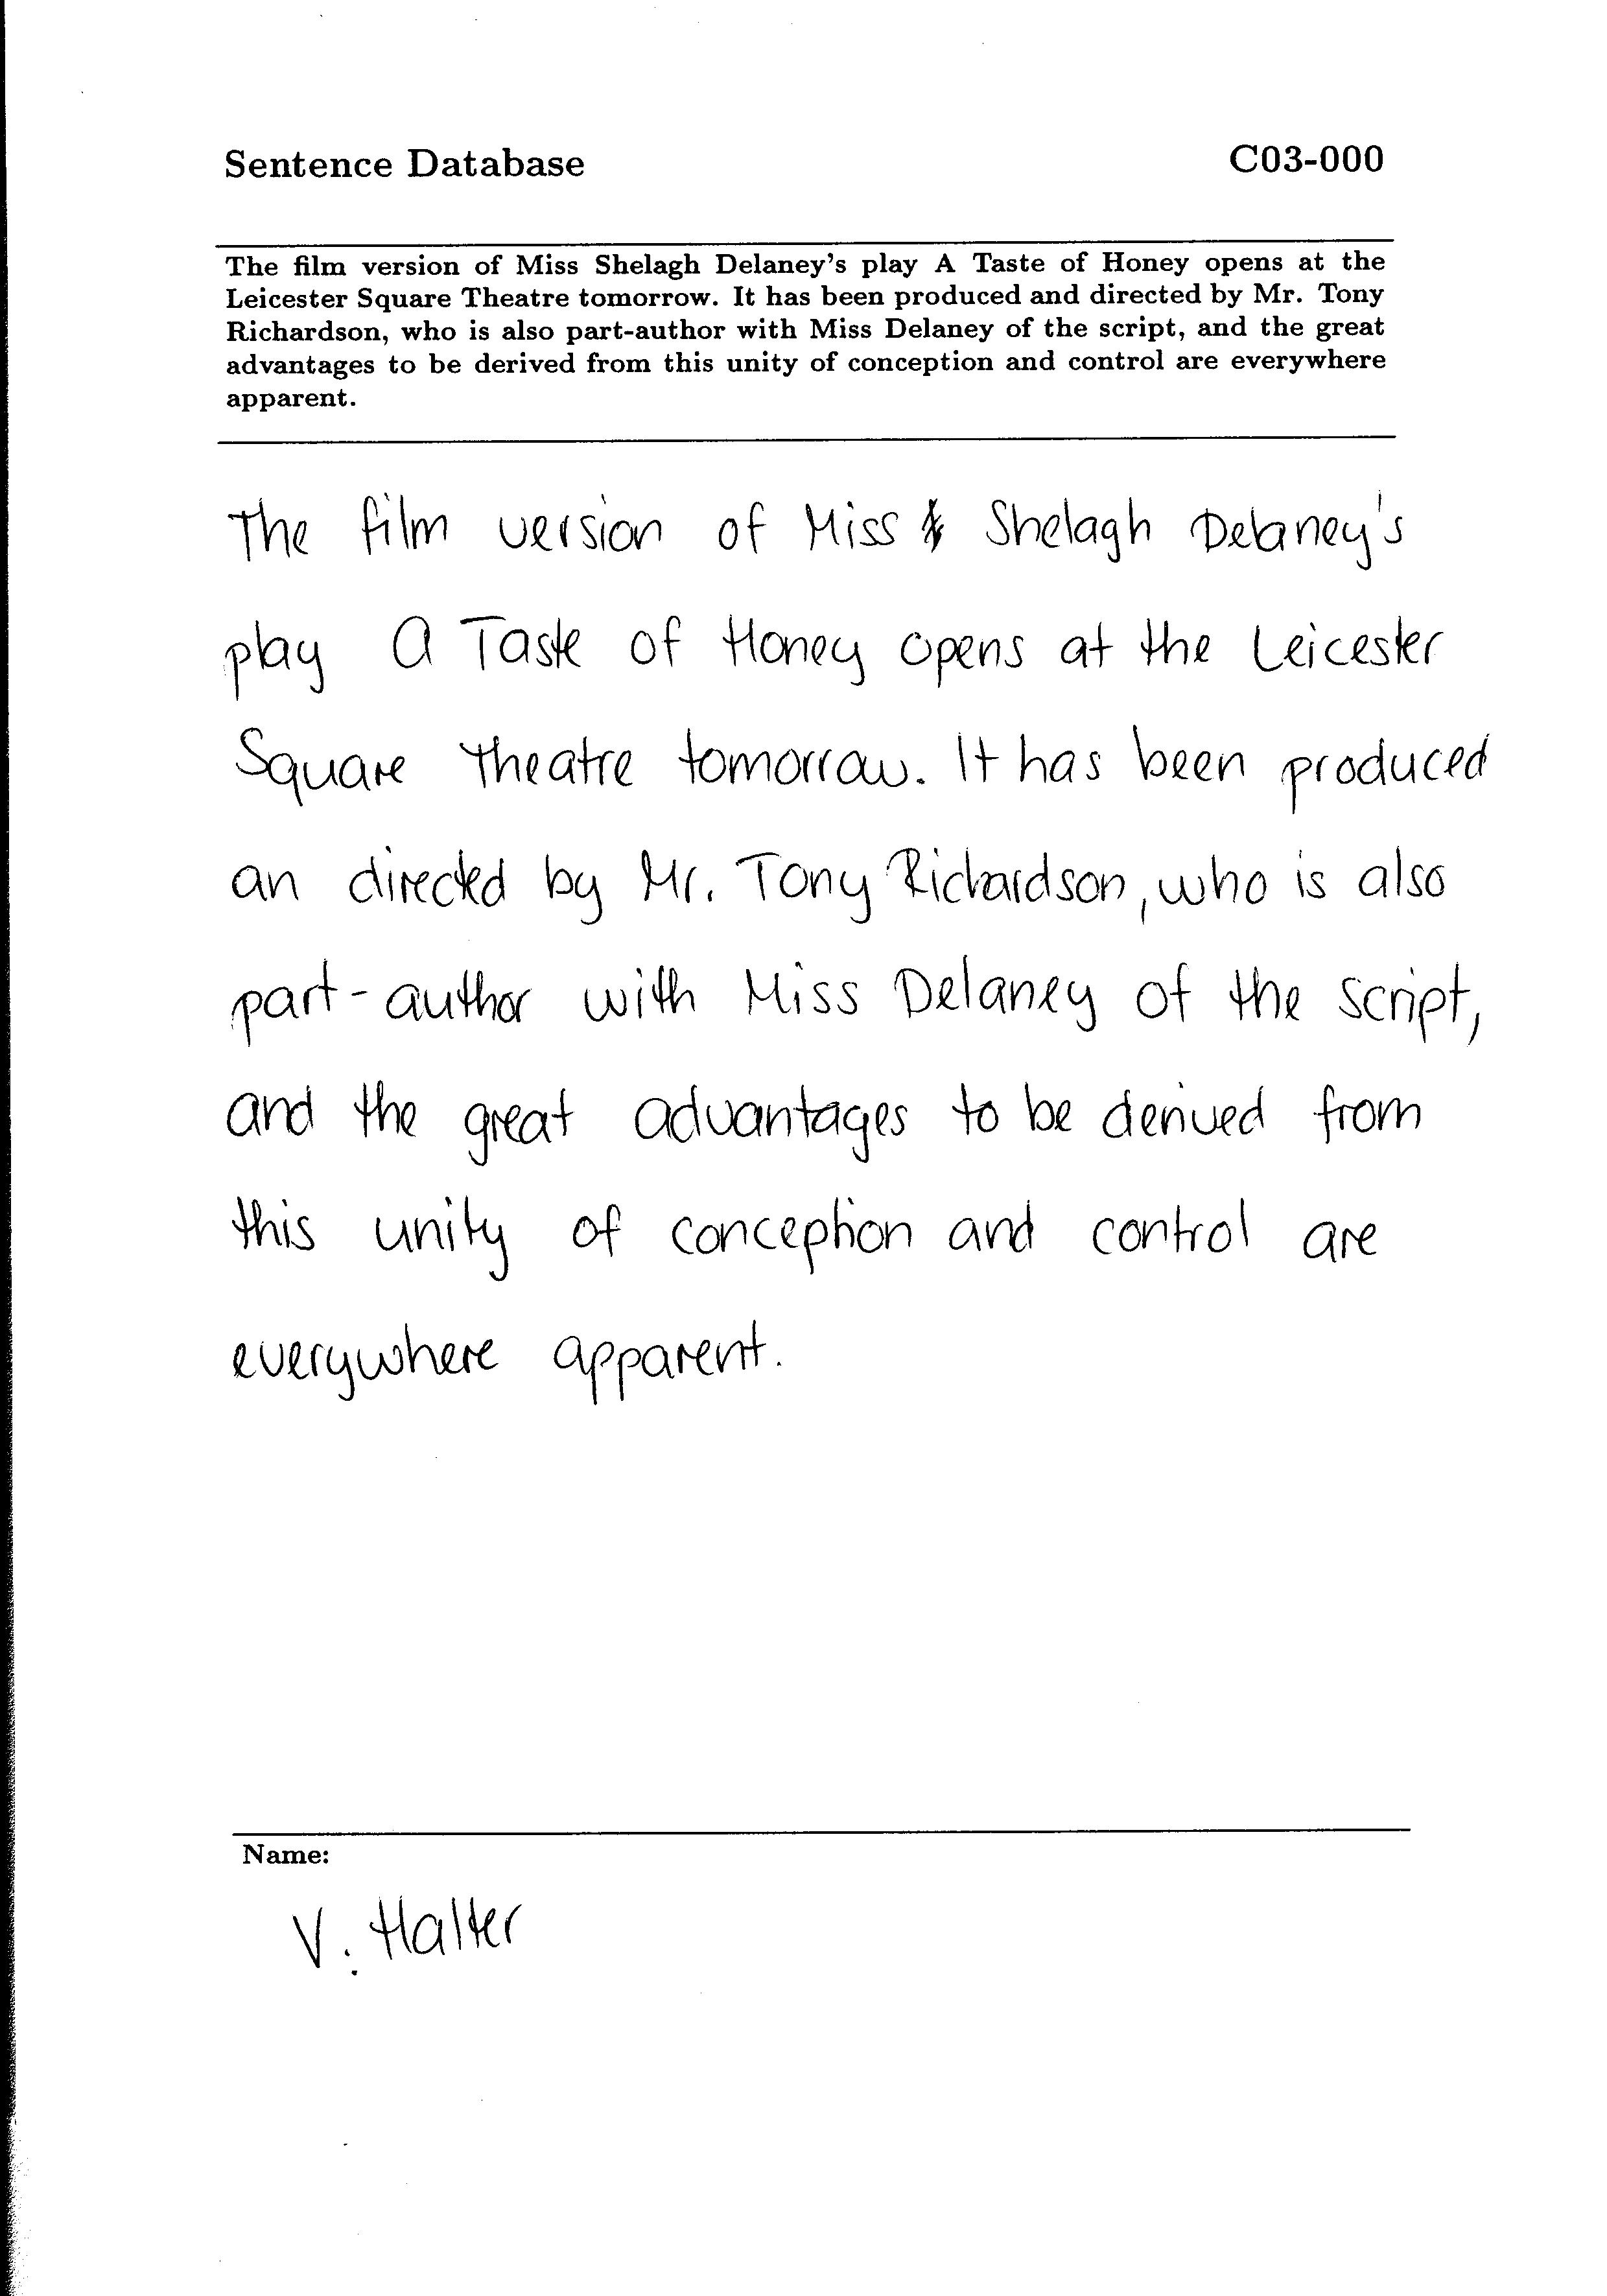 Sentence Database C03-000
The film version of Miss Shelagh Delaney's play A Taste of Honey opens at the
Leicester Square Theatre tomorrow. It has been produced and directed by Mr. Tony
Richardson, who is also part-author with Miss Delaney of the script, and the great
advantages to be derived from this unity of conception and control are everywhere
apparent.
The film version of Miss Shelagh Delaney's
play A Taste of Honey opens at the Leicester
Square Theatre tomorrow. It has been produced
an directed by Mr. Tony Richardson, who is also
part-author with Miss Delaney of the script,
and the great advantages to be derived from
this unity of conception and control are
everywhere apparent.
Name:
V. Halter